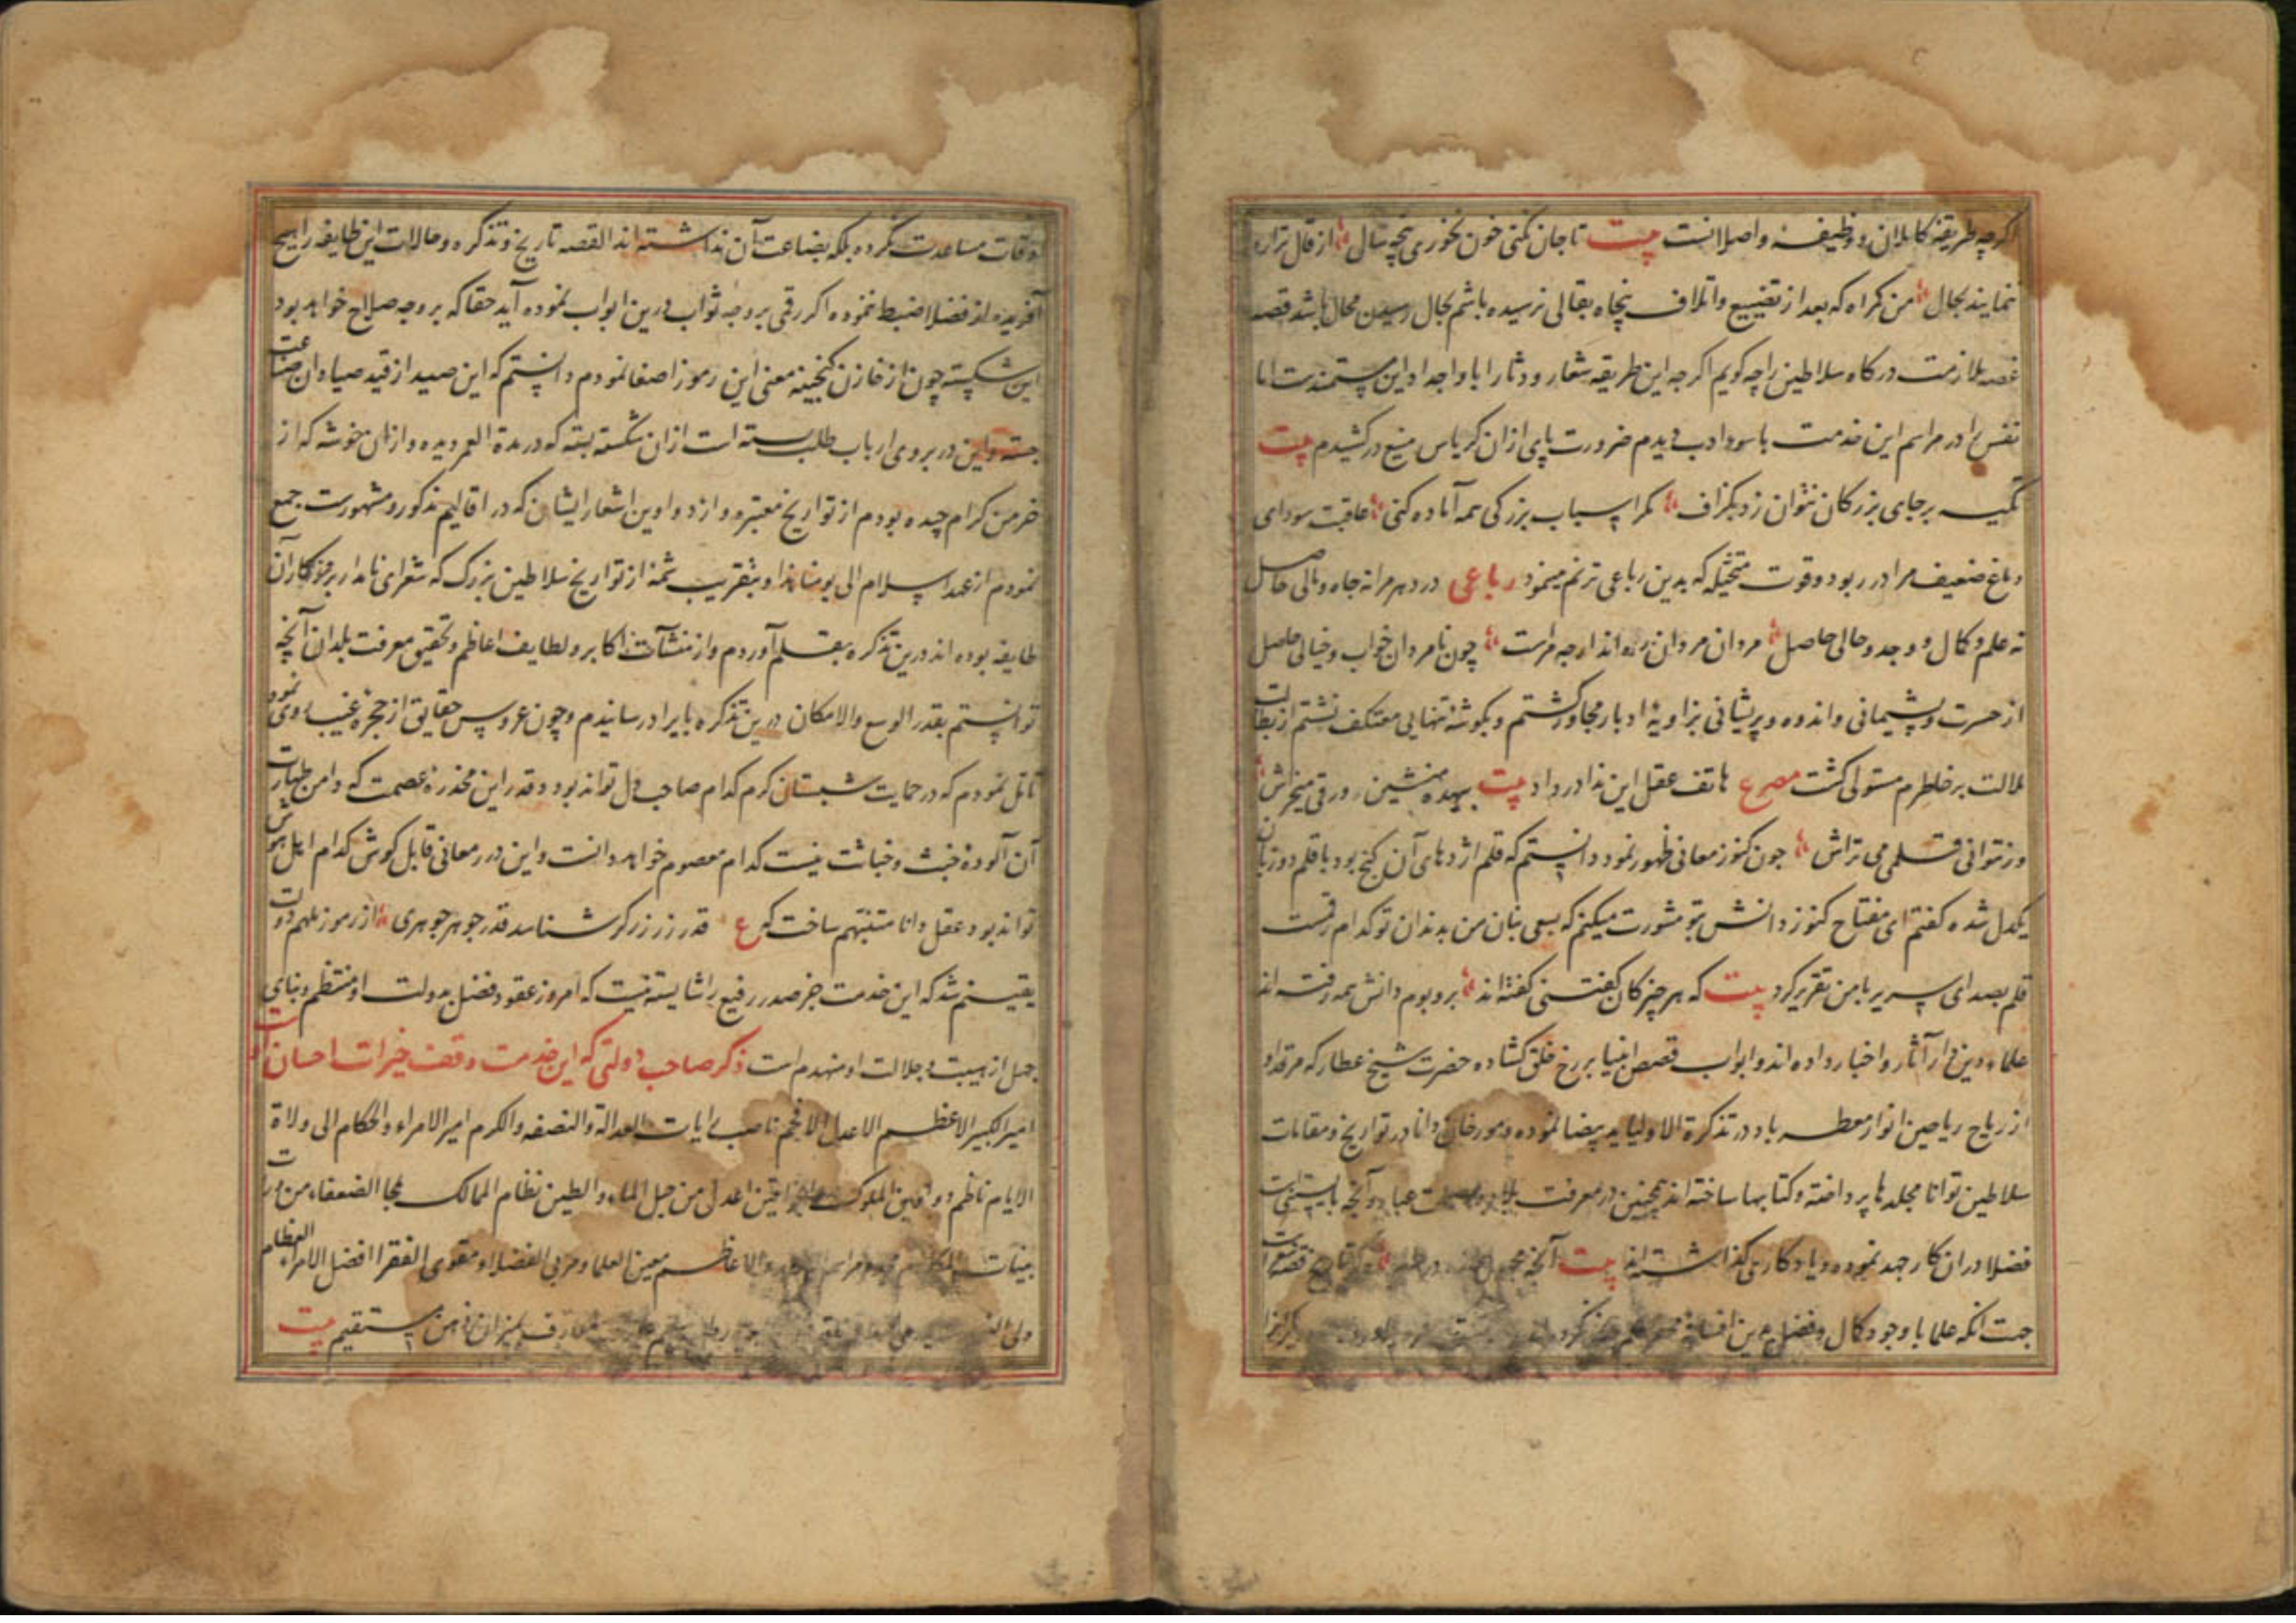 اکرچه طریقهٔ کاملان و وظیفهٔ واصلانست بیت تا جان نکنی خون نخوری پنجه سال از قال تراره
ننمایند بحال من کمراه که بعد از تضییع و اتلاف پنجاه بقالی نرسیده باشم بحال رسیدن محال باشد قصهٔ
غصهٔ ملازمت درکاه سلاطین را چه کویم اکرچه این طریقه شعار و دثار ابا و اجداد این مستمندست اما
نفس را در مراسم این خدمت با سوء ادب دیدم ضرورت پای ازان کریاس منیع درکشیدم بیت
تکیه بر جای بزرکان نتوان زد بکزاف مکر اسباب بزرکی همه آماده کنی عاقبت سودای
دماغ ضعیف مرا در ربود و قوت متخیله که بدین رباعی ترنم مینمود رباعی در دهر مرا نه جاه و مالی حاصل
نه علم و کمال و وجد و حالی حاصل مردان مردان ره اند ارچه مراست چون نامردان خواب و خیالی حاصل
از حسرت و پشیمانی و اندوه و پریشانی بزاویهٔ ادبار مجاور کشتم و بکوشهٔ تنهایی معتکف نشستم از بطالت
ملالت بر خاطرم مستولی کشت مصرع هاتف عقل این ندا در داد بیت بیهده منشین ورقی میخراش
ور نتوانی قلمی می تراش چون کنوز معانی ظهور نمود دانستم که قلم اژدهای آن کنج بود با قلم دو زبان
یکدل شده کفتم ای مفتاح کنوز دانش بتو مشورت میکنم که بسعی بنان من بدندان تو کدام رقمست
قلم بصدای سریر با من تقریر کرد بیت که هر چیز کان کفتنی کفته اند بر و بوم دانش همه رفته اند
علماء دین در آثار و اخبار داده اند و ابواب قصص انبیا بر رخ خلق کشاده حضرت شیخ عطار که مرقد او
از ریاح ریاحین انوار معطر باد در تذکرة الاولیا ید بیضا نموده و مورخان دانا در تواریخ و مقامات
سلاطین توانا مجلدها پرداخته و کتابها ساخته اند همچنین در معرفت بلاد عباد و آنچه بایستنیست
فضلا در ان کار جهد نموده و یادکاری کذاشته اند بیت آنچه تاریخ قصهٔ شعراست
جهت آنکه علما با وجود کمال و فضل بدین افسانه
اوقات مساعدت نکرده بلکه بضاعت آن نداشته اند القصه تاریخ و تذکره و حالات این طایفه را هیچ
آفریده از فضلا ضبط ننموده اکر رقمی بر وجه ثواب درین ابواب نموده آید حقا که بر وجه صلاح خواهد بود
این شکسته چون از خازن کنجینهٔ معنی این رموز اصغا نمودم دانستم که این صید از قید صیادان صناعت
جسته و این در بروی ارباب طلب بسته است ازان شکسته بسته که در مدة العمر دیده و ازان خوشه که از
خرمن کرام چیده بودم از تواریخ معتبره و از دواوین اشعار ایشان که در اقالیم مذکور و مشهورست جمع
نمودم از عهد اسلام الی یومنا هذا و بتقریب شمهٔ از تواریخ سلاطین بزرک که شعرای نامدار بروزکار آن
طایفه بوده اند درین تذکره بقلم آوردم و از منشآت اکابر و لطایف اعاظم و تحقیق معرفت بلدان آنچه
توانستم بقدر الوسع والامکان درین تذکره بایراد رسانیدم و چون عروس حقایق از حجرهٔ غیب روی نمود
تامل نمودم که در حمایت شبستان کرم کدام صاحب دل تواند بود و قدر این مخدرهٔ عصمت که دامن طهارت
آن آلودهٔ خبث و خباثت نیست کدام معصوم خواهد دانست و این در معانی قابل کوش کدام اهل هوش
تواند بود عقل دانا متنبهم ساخت که ع قدر زر زرکر شناسد قدر جوهر جوهری از رموز ملهم دولت
یقینم شد که این خدمت جز صدر رفیع را شایسته نیست که امروز عقود فضل بدولت او منتظم و بنای
جهل از هیبت و جلالت او منهدم است ذکر صاحب دولتی که این خدمت وقف خیرات احسان اوست
امیر الکبیر الاعظم الاعدل الافخم ناصب رایات العدالة والنصفه والکرم امیر الامراء والحکام الی ولاة
الایام ناظم دواوین الملوک والخواقین اعدل من جبل الماء والطین نظام الممالک ملجا الضعفاء من
بینات الاعاظم معین العلما و مربی الفضلا و مقوی الفقرا افضل الامراء العظام
ولی بمیزان ذهن مستقیم بیت